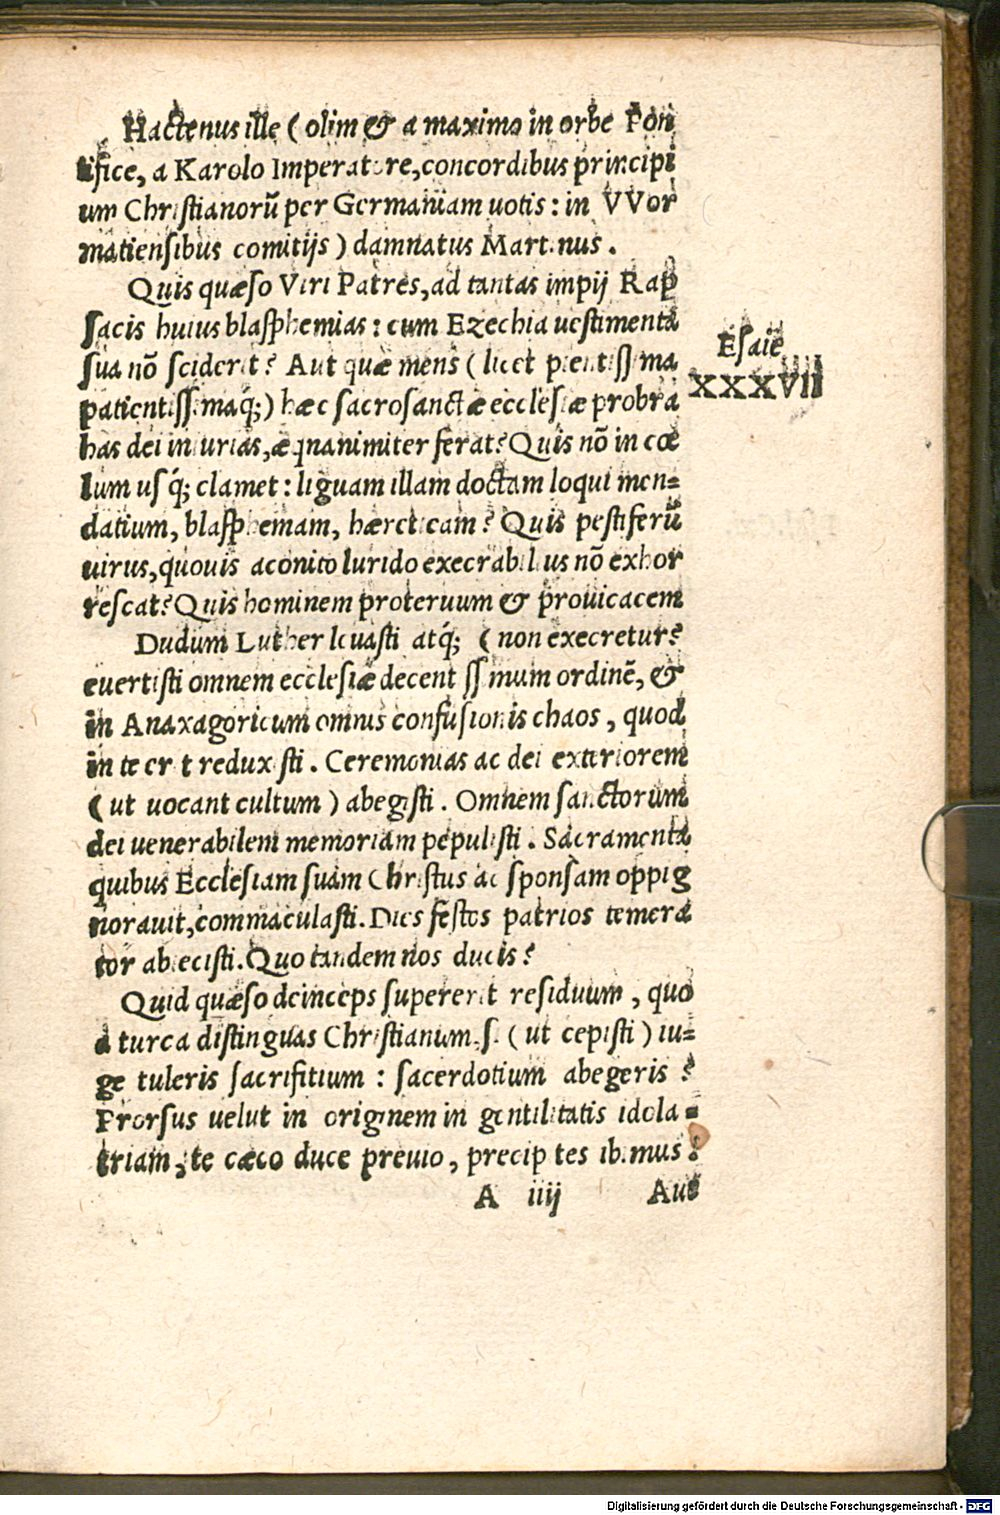 Hactenus ille ( olim & a maximo in orbe Pon
tifice, a Karolo Imperatore, concordibus principi
um Christianorū per Germaniam uotis : in VVor
matiensibus comitijs ) damnatus Martinus .
Quis quæso Viri Patres, ad tantas impij Rap
sacis huius blasphemias : cum Ezechia uestimenta
sua nō sciderit? Aut quæ mens ( licet pientissima
patientissimaq́; ) hæc sacrosanctæ ecclesiæ probra
has dei iniurias, æquanimiter ferat? Quis nō in cœ
lum usq́; clamet : liguam illam doctam loqui men=
datium, blasphemam, hæreticam? Quis pestiferū
uirus, quouis aconito lurido execrabilius nō exhor
rescat? Quis hominem proteruum & prouicacem
Esaiē
XXXVII
Dudum Luther leuasti atq́; ( non execretur?
euertisti omnem ecclesiæ decentissimum ordinē, &
in Anaxagoricum omnis confusionis chaos, quod
in te erit reduxisti . Ceremonias ac dei exteriorem
( ut uocant cultum ) abegisti . Omnem sanctorum
dei uenerabilem memoriam pepulisti . Sacramenta
quibus Ecclesiam suam Christus ac sponsam oppig
norauit, commaculasti. Dies festos patrios temera
tor abiecisti. Quo tandem nos ducis?
Quid quæso deinceps supererit residuum, quo
a turca distinguas Christianum. s. ( ut cepisti ) iu=
ge tuleris sacrifitium : sacerdotium abegeris ?
Prorsus uelut in originem in gentilitatis idola=
triam, te cæco duce preuio, precipites ibimus?
A iiij Aut
Digitalisierung gefördert durch die Deutsche Forschungsgemeinschaft - DFG